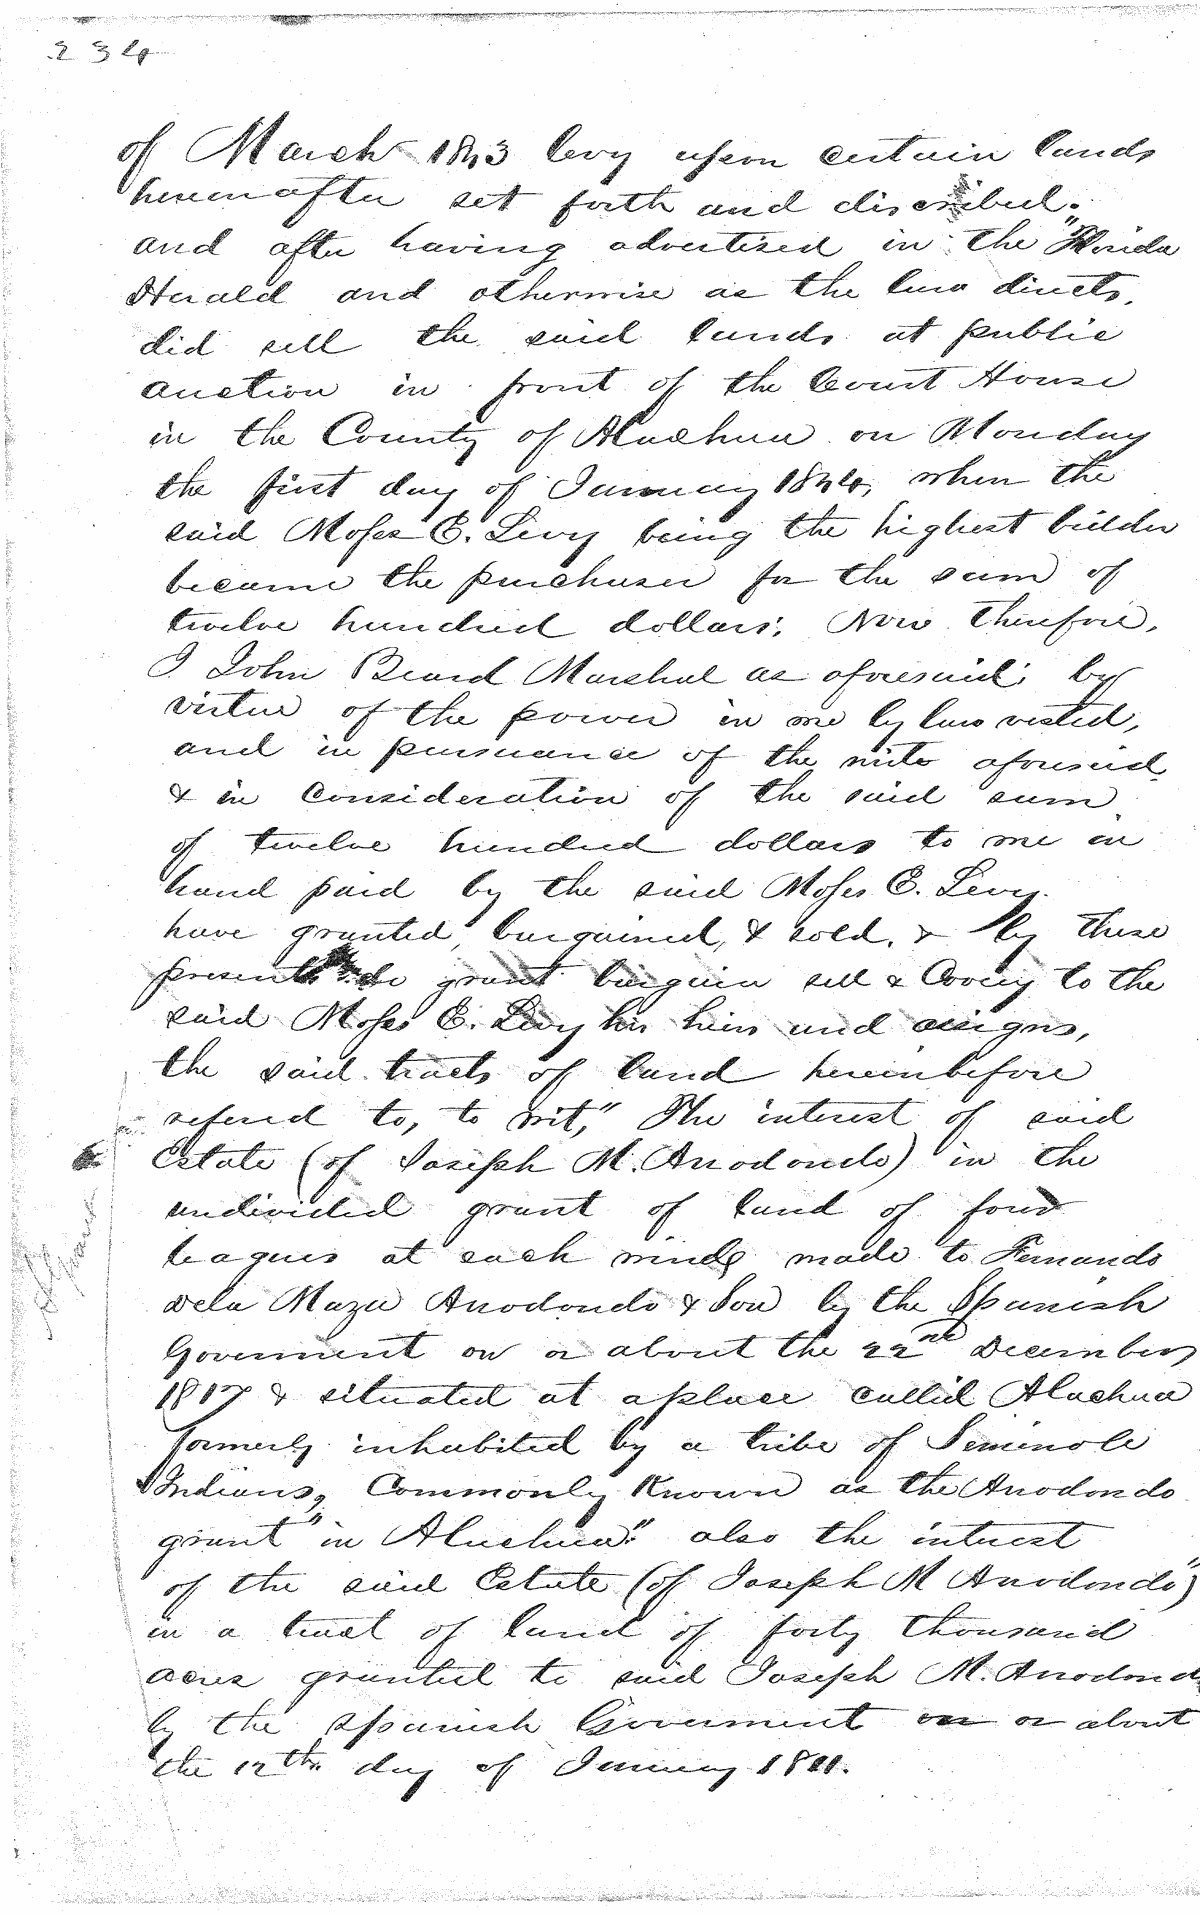 234
of March 1843 levy upon certain lands
hereinafter set forth and discribed.
and after having advertised in the "Florida
Herald and otherwise as the law directs,
did sell the said lands at public
auction in front of the Court House
in the County of Alachua on Monday
the first day of January 1844, when the
said Moses E. Levy being the highest bidder
became the purchaser for the sum of
twelve hundred dollars; Now therefore,
I John Beard Marshal as aforesaid; by
virtue of the power in me by law vested,
and in pursuance of the writs aforesaid
& in consideration of the said sum
of twelve hundred dollars to me in
hand paid by the said Moses E. Levy.
have granted, bargained, & sold, & by these
presents do grant bargain sell & Covey to the
said Moses E. Levy his heirs and assigns,
the said tracts of land hereinbefore
refered to, to wit," The interest of said
Estate (of Joseph M. Arrodondo) in the
undivided grant of land of four
leagues at each winde made to Fernando
Dela Maza Arrodondo & Son by the Spanish
Goverment on or about the 22nd December
1817 & situated at a place called Alachua
formerly inhabited by a tribe of Seminole
Indians, Commonly Known as the Arrodondo
grant "in Alachua." also the interest
of the said Estate (of Joseph M Arrodondo")
in a tract of land of forty thousand
acres granted to said Joseph M. Arrodond
by the Spanish Goverment on or about
the 12th day of January 1811.